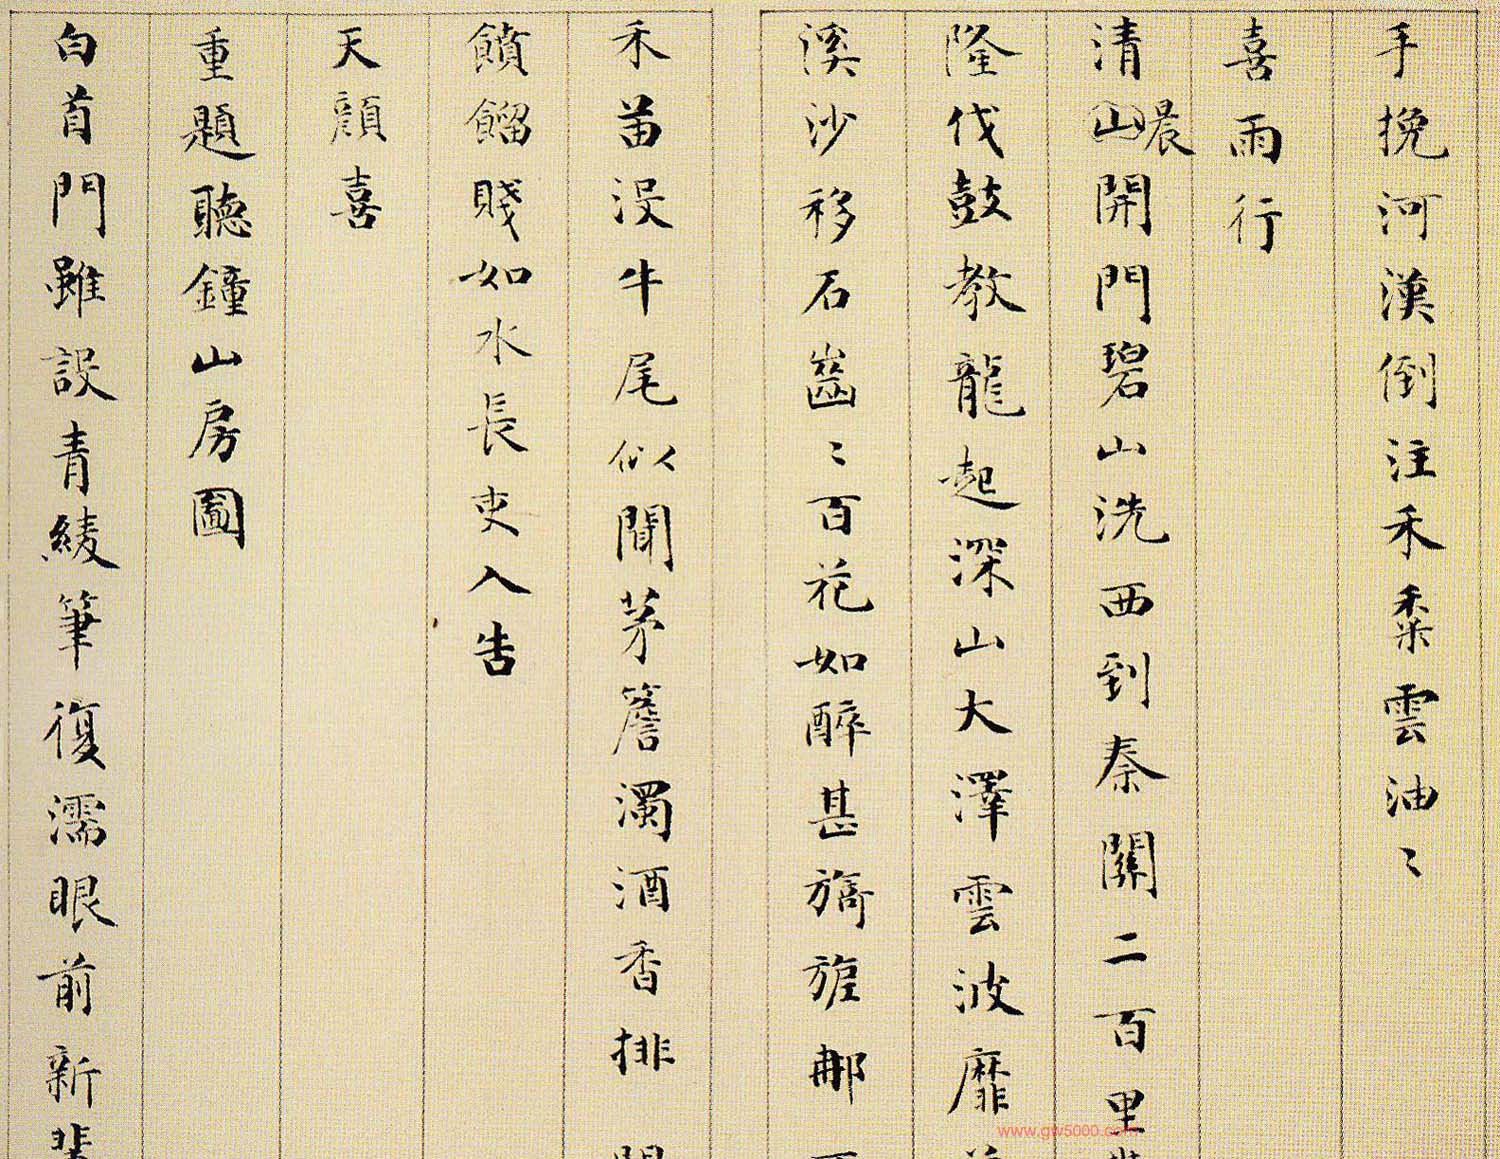 手挽河漢倒注禾黍雲油〻
喜雨行
清山晨開門碧山洗西到秦關二百里
隆伐鼓教龍起深山大澤雲波靡
溪沙移石齒〻百花如醉甚旖旎那
禾苗沒牛尾似聞茅簷濁酒香排
饙餾賤如水長吏入告
天顏喜
重題聽鐘山房圖
白首門雖設青綾筆復濡眼前新
www.gw5000.com